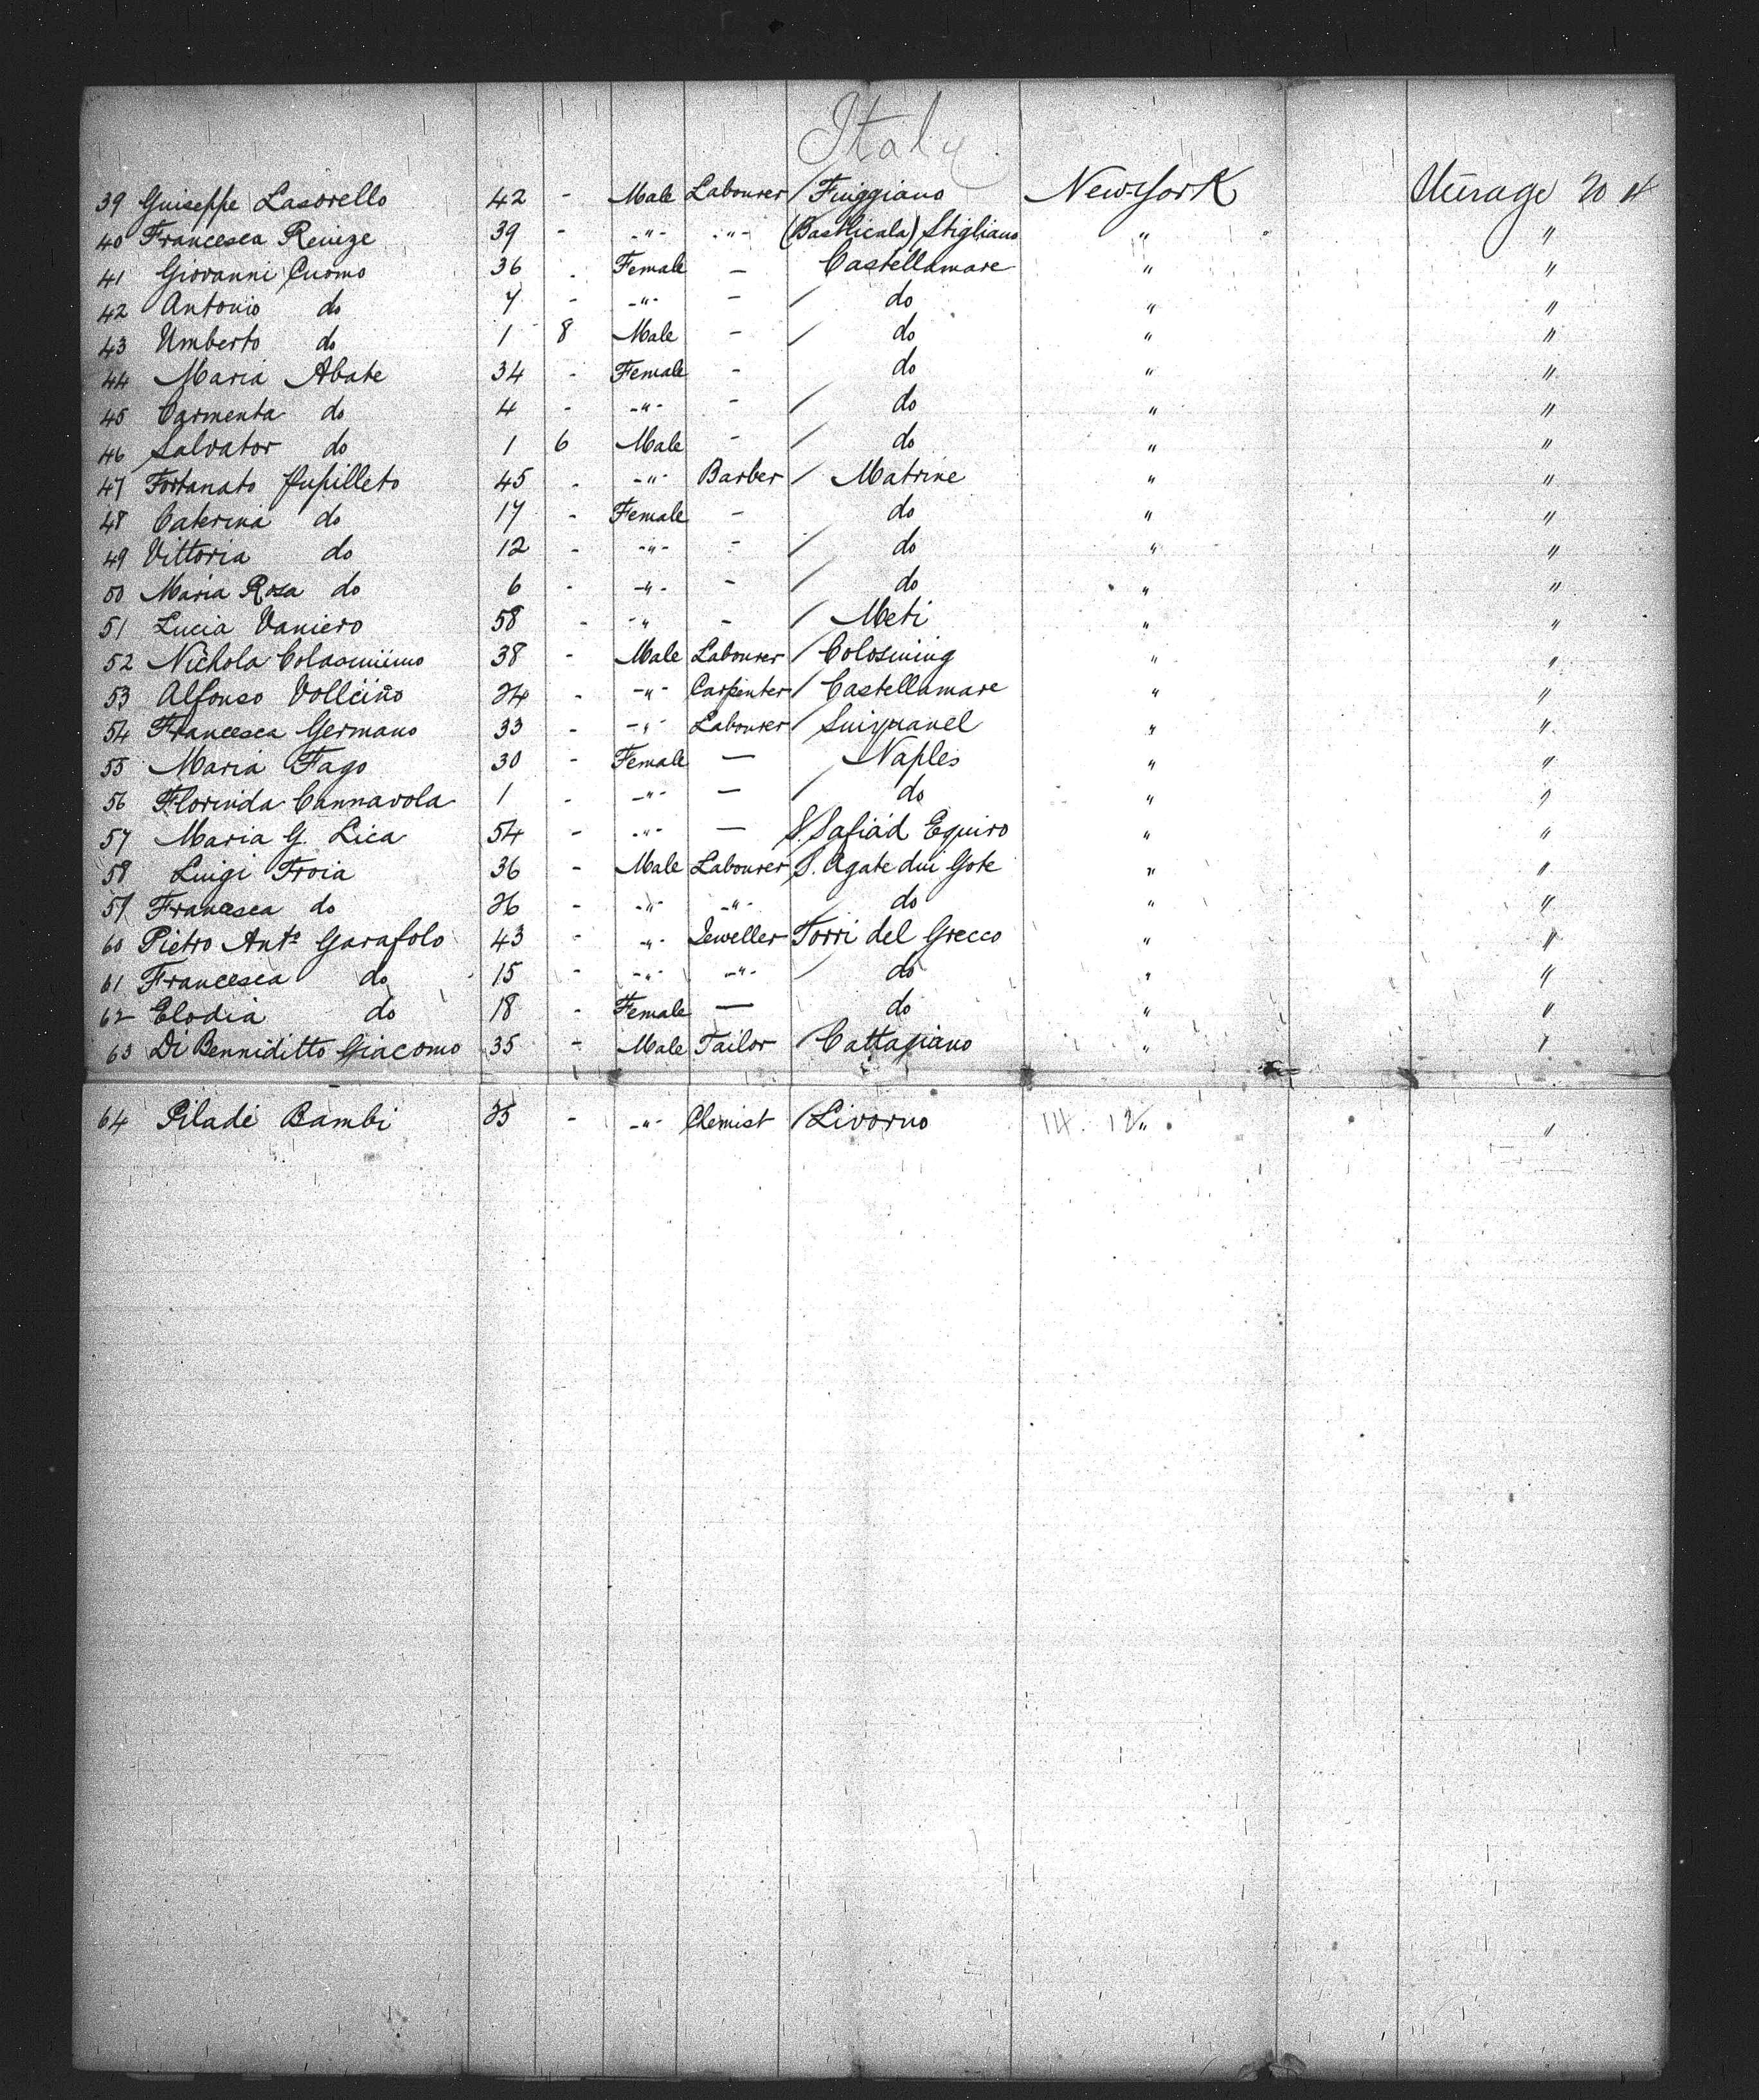 Italy
39 Guiseppe Lasorello 42 - Male Labourer / Fuiggiano New York Steerage 20
40 Francesca Renize 39 - -"- -"- (Basilicala) Stigliano " "
41 Giovanni Cuomo 36 - Female - Castellamare " "
42 Antonio do 7 - -"- - / do " "
43 Umberto do 1 8 Male - / do " "
44 Maria Abate 34 - Female - do " "
45 Carmenta do 4 - -"- - / do " "
46 Salvator do 1 6 Male - / do " "
47 Fortanato Pupilleto 45 - -"- Barber / Matrine " "
48 Caterina do 17 - Female - do " "
49 Vittoria do 12 - -"- - / do " "
50 Maria Rosa do 6 - -"- - / do " "
51 Lucia Vaniero 58 - -"- - / Meti " "
52 Nichola Colasmimo 38 - Male Labourer / Colosming " "
53 Alfonso Vollcino 24 - -"- Carpenter / Castellamare " "
54 Francesca Germano 33 - -"- Labourer / " "
55 Maria Fago 30 - Female - Naples " "
56 Florinda Cannavola 1 - -"- - / do " "
57 Maria G. Lica 54 - -"- - S. Safiad Equiro " "
58 Luigi Troia 36 - Male Labourer S. Agate dui Gote " "
59 Francesca do 26 - -"- -"- do " "
60 Pietro Anto Garafolo 43 - -"- Jeweller Torri del Grecco " "
61 Francesca do 15 - -"- -"- / do " "
62 Elodia do 18 - Female - do " "
63 Di Benniditto Giacomo 35 - Male Tailor / Cattagiano " "
64 Piladi Bambi 25 - -"- Chemist / Livorno 14. 12 " "